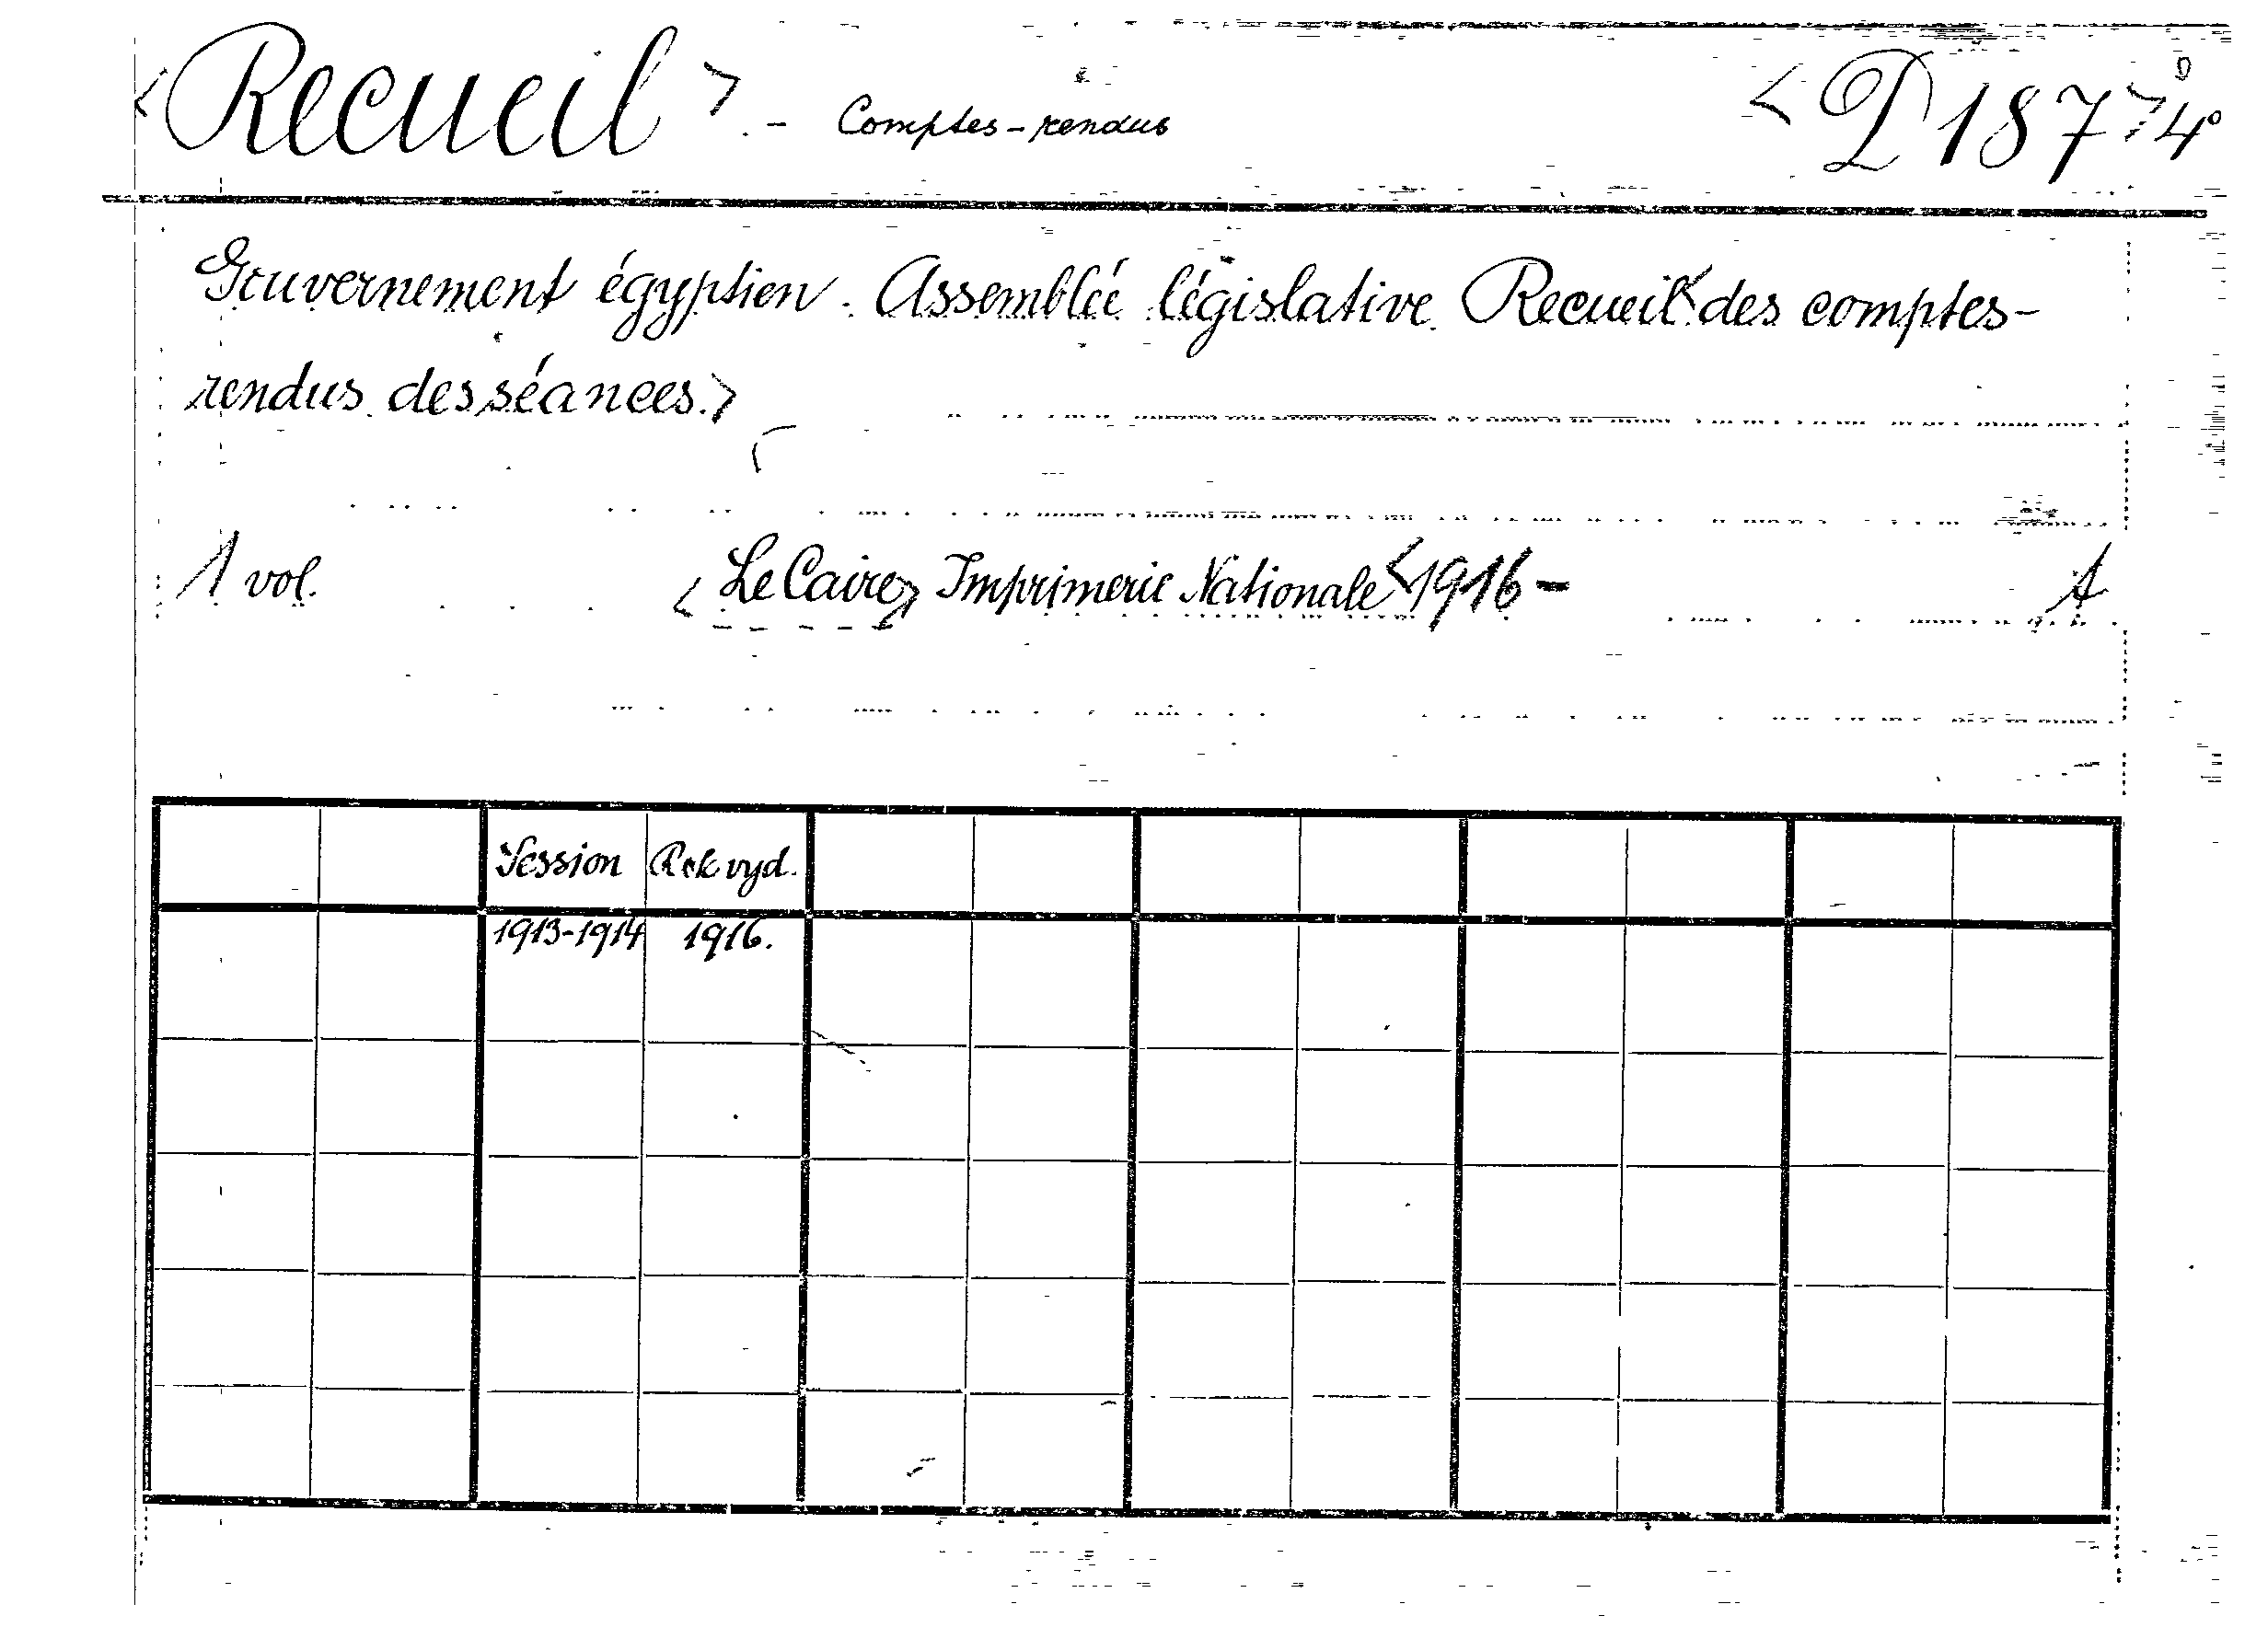 <Recueil>. - Comptes-rendus <D 187> 4°
Gouvernement égyptien. Assemblée législative. Recueil des comptes-
rendus des séances.>
1 vol. <Le Caire> Imprimerie Nationale <1916- A
Session Rok vyd.
1913-1914 1916.